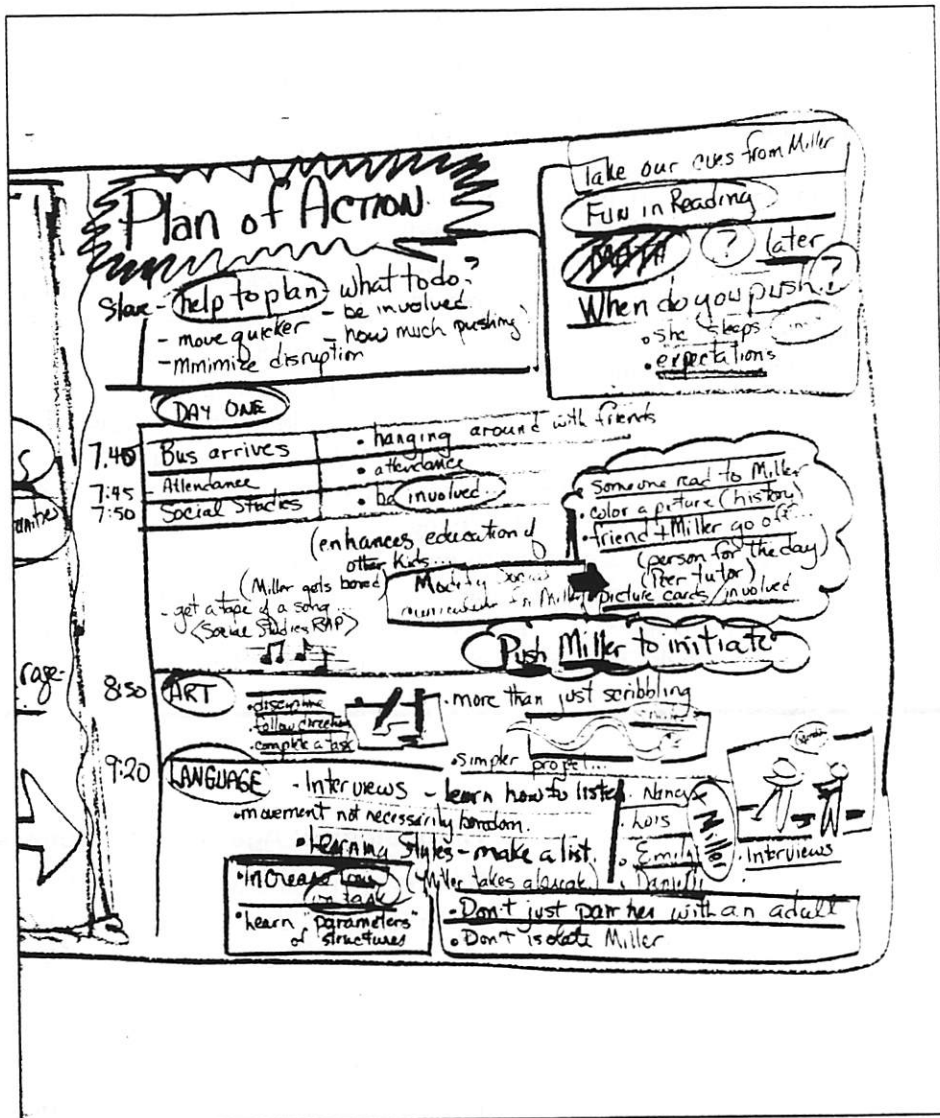 Plan of ACTION
- help to plan - what to do?
- be involved
- move quicker - how much pushing
- minimize disruption
Take our cues from Miller
FUN in Reading
MATH ? later
When do you push?
• she sleeps
• expectations
DAY ONE
7:40 Bus arrives • hanging around with friends
7:45 - Attendance • attendance
7:50 Social Studies • be involved...
(enhances education of
other kids...
(Miller gets bored)
- get a tape of a song...
<Social Studies RAP>
Modify Social
curriculum for Miller
• Someone read to Miller
• color a picture (history)
• friend + Miller go off...
(person for the day)
(Peer tutor)
picture cards/involved
Push Miller to initiate
8:50 ART
• discipline
• follow direction
• complete a task
• more than just scribbling
• Simpler project...
9:20 LANGUAGE
- Interviews - learn how to listen
• movement not necessarily boredom.
• Learning Styles - make a list.
(Miller takes a break)
• Nancy
• Lois
• Emily
• Danielle
Miller
• Interviews
• Increase time
on task
• Learn "parameters"
of "structures
• Don't just pair her with an adult
• Don't isolate Miller